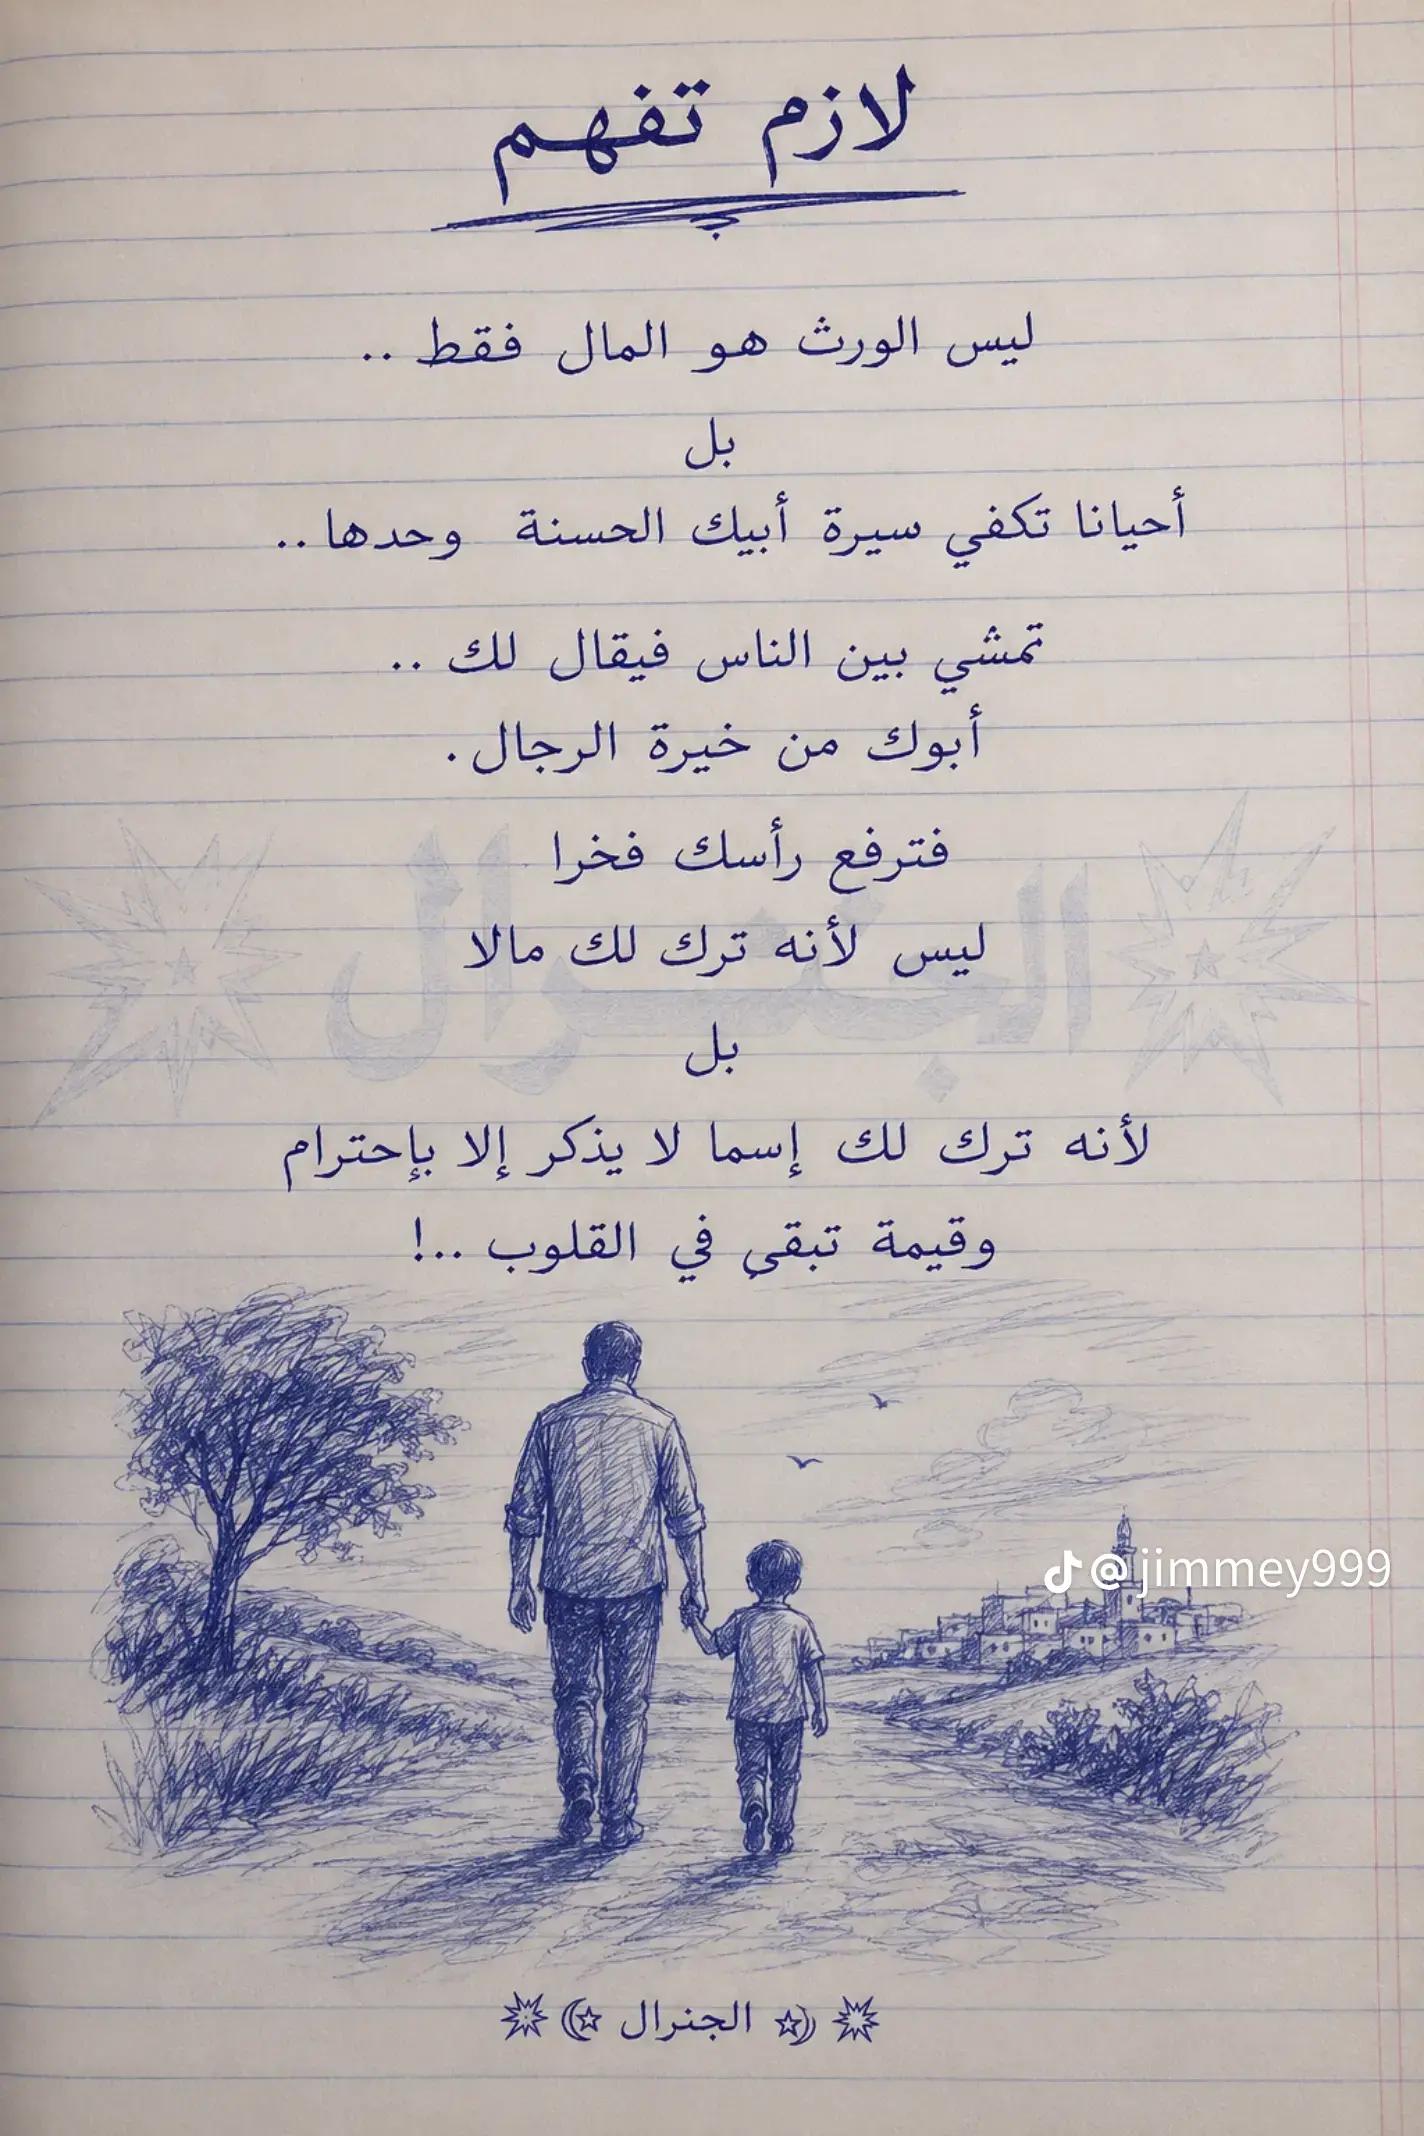 لازم تفهم
ليس الورث هو المال فقط ..
بل
أحيانا تكفي سيرة أبيك الحسنة وحدها ..
تمشي بين الناس فيقال لك ..
أبوك من خيرة الرجال .
فترفع رأسك فخرا
ليس لأنه ترك لك مالا
بل
لأنه ترك لك إسما لا يذكر إلا بإحترام
وقيمة تبقى في القلوب ..!
الجنرال
@jimmey999
الجنرال